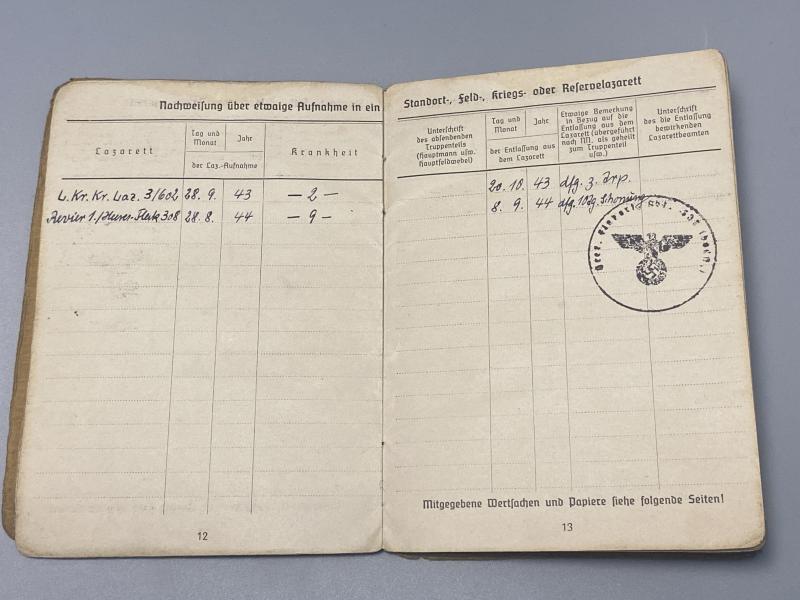 Nachweisung über etwaige Aufnahme in ein
Lazarett
Tag und
Monat
Jahr
der Laz.-Aufnahme
Krankheit
L. Kr. Kr. Laz. 3/602 28. 9. 43 – 2 –
Revier 1./Heeres-Flak 308 28. 8. 44 – 9 –
12
Standort-, Feld-, Kriegs- oder Reservelazarett
Unterschrift
des absendenden
Truppenteils
(Hauptmann usw.
Hauptfeldwebel)
Tag und
Monat
Jahr
der Entlassung aus
dem Lazarett
Etwaige Bemerkung
in Bezug auf die
Entlassung aus dem
Lazarett (übergeführt
nach NN, als geheilt
zum Truppenteil
usw.)
Unterschrift
des die Entlassung
bewirkenden
Lazarettbeamten
20. 10. 43 dfg. z. Trp.
8. 9. 44 dfg. 10 Tg. Schonung
Mitgegebene Wertsachen und Papiere siehe folgende Seiten!
13